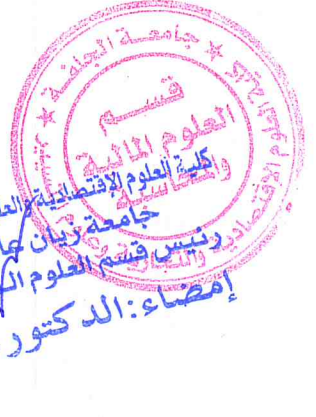 جامعة الجلفة
قسم
العلوم المالية
والمحاسبة
كلية العلوم الإقتصادية والعلو
جامعة زيان عا
رئيس قسم العلوم ال
إمضاء:الدكتور